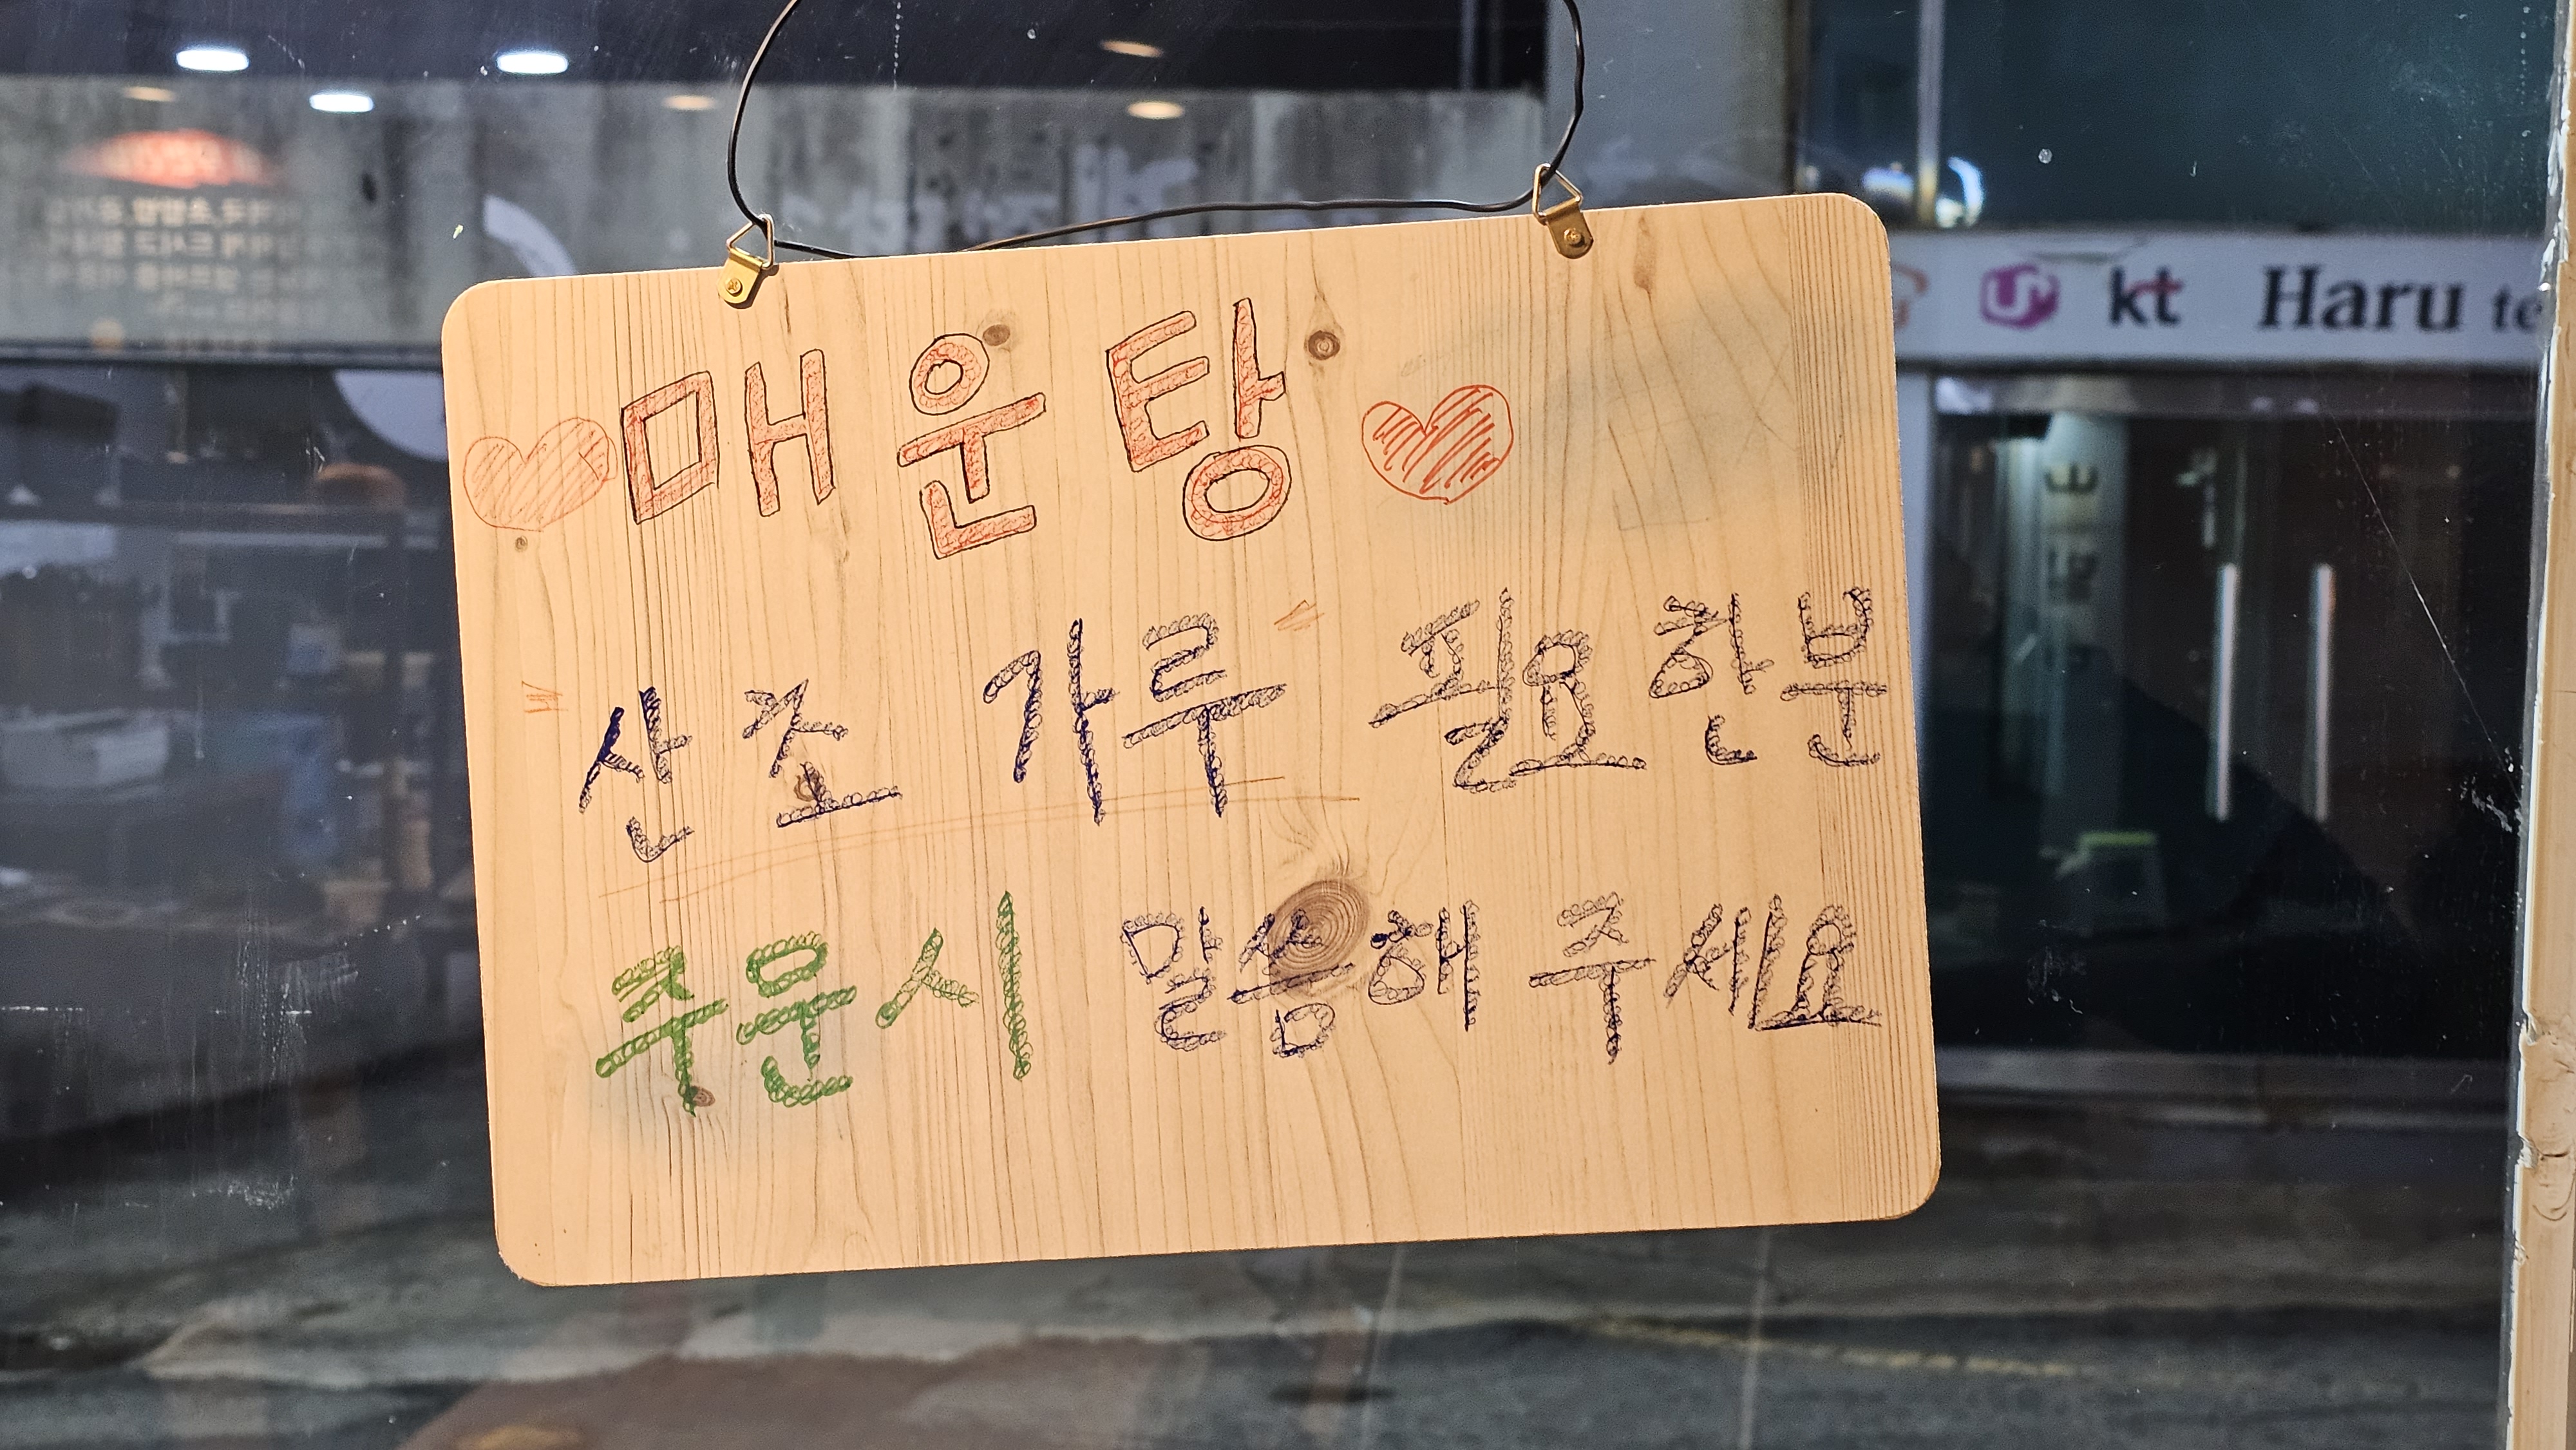 매운탕
"산초 가루" 필요한분
주문시 말씀해 주세요
U+ kt Haru te